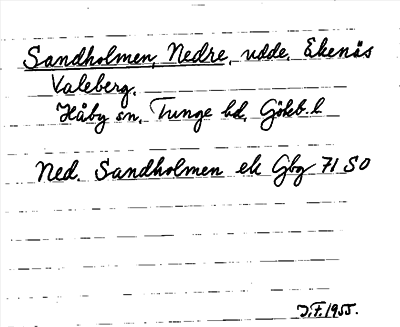 Sandholmen, Nedre, udde, Ekenäs
Valeberg.
Håby sn. Tunge hd. Göteb. l
Ned. Sandholmen ek Gbg 71 SO
J.F. 1955.